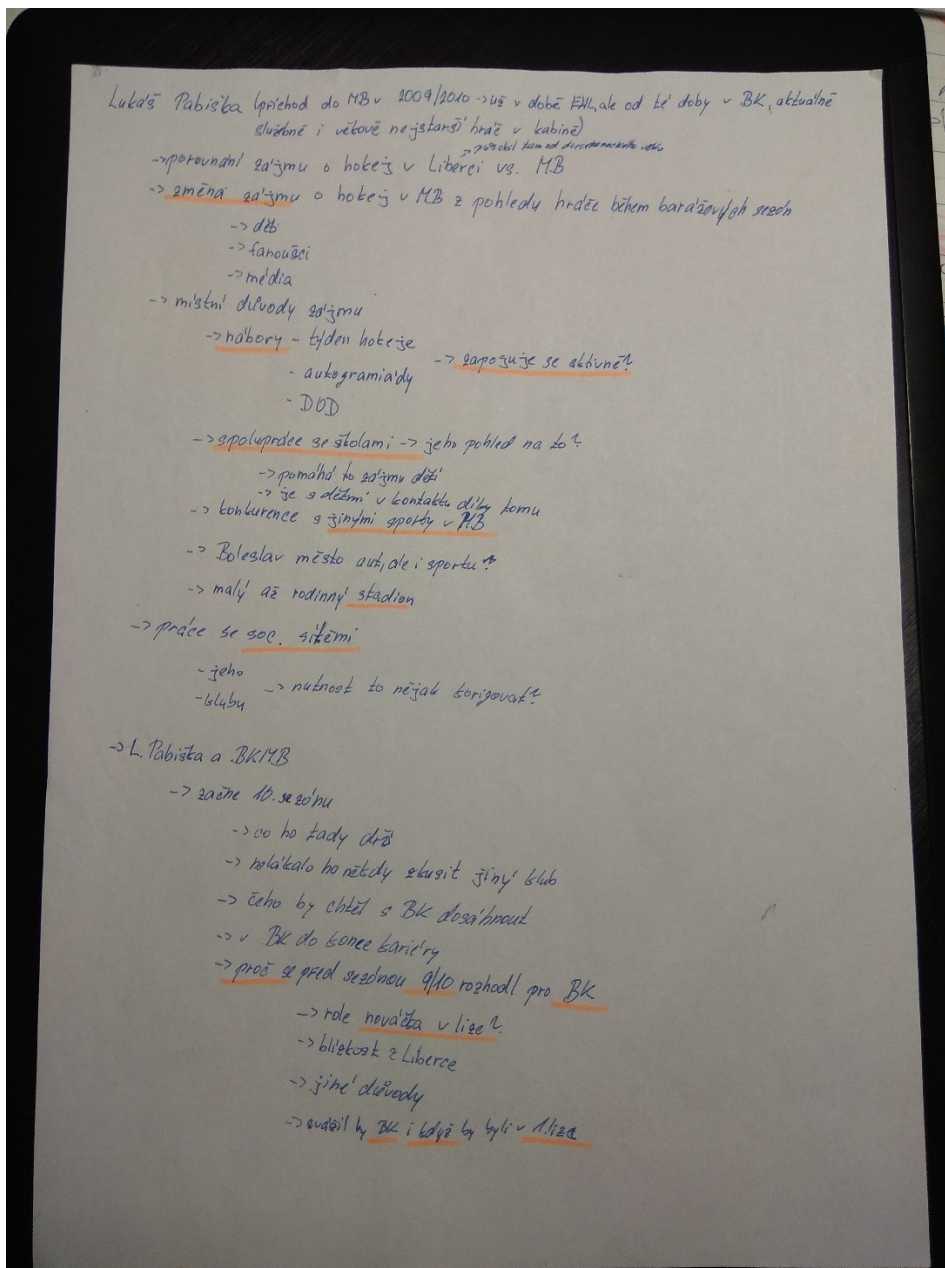 Lukáš Pabiška (příchod do MB v 2009/2010 -> už v době EHL, ale od té doby v BK, aktuálně
služebně i věkově nejstarší hráč v kabině)
-> působil tam od dorosteneckého věku
-> porovnání zájmu o hokej v Liberci vs. MB
-> změna zájmu o hokej v MB z pohledu hráče během barážových sezón
-> děti
-> fanoušci
-> média
-> místní důvody zájmu
-> nábory - týden hokeje
-> zapojuje se aktivně?
- autogramiády
- DOD
-> spolupráce se školami -> jeho pohled na to?
-> pomáhá to zájmu dětí
-> je s dětmi v kontaktu díky tomu
-> konkurence s jinými sporty v MB
-> Boleslav město aut, ale i sportu?
-> malý až rodinný stadion
-> práce se soc. sítěmi
- jeho
- klubu
-> nutnost to nějak korigovat?
-> L. Pabiška a BKMB
-> začne 10. sezónu
-> co ho tady drží
-> nelákalo ho někdy zkusit jiný klub
-> čeho by chtěl s BK dosáhnout
-> v BK do konce kariéry
-> proč se před sezónou 9/10 rozhodl pro BK
-> role nováčka v lize?
-> blízkost z Liberce
-> jiné důvody
-> zvážil by BK i když by byli v 1. lize